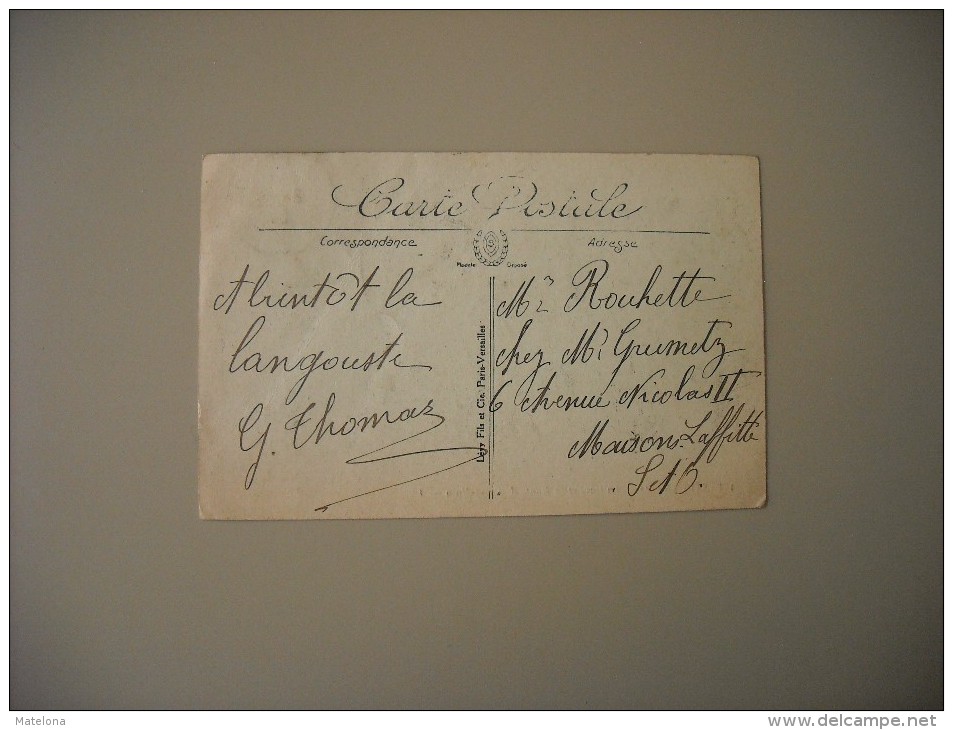 Carte Postale
Correspondance
Adresse
Modèle Déposé
A bientôt la
langouste
G. Thomas
Lévy Fils et Cie. Paris-Versailles
Mr Rouhette
chez Mr Grumetz
6 Avenue Nicolas II
Maisons-Laffitte
S et O.
Matelona
www.delcampe.net